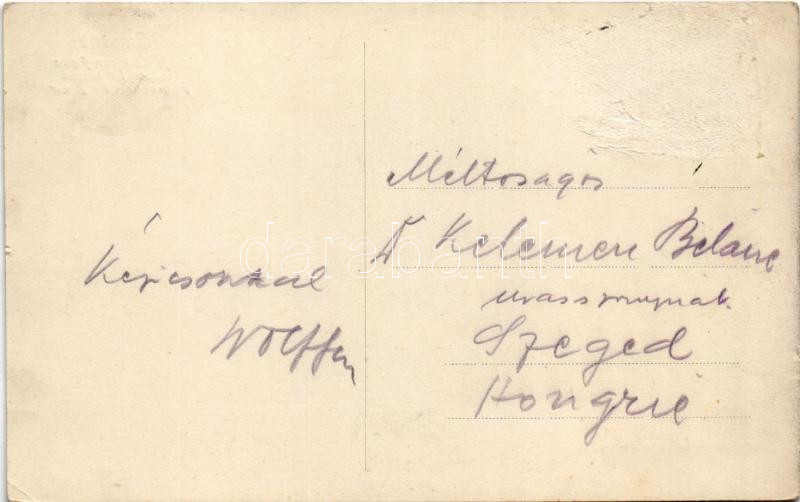 Kézcsókkal
Wolffen
Méltoságos
Dr Kelemen Beláné
urasszonynak
Szeged
Hongrie
darabanth